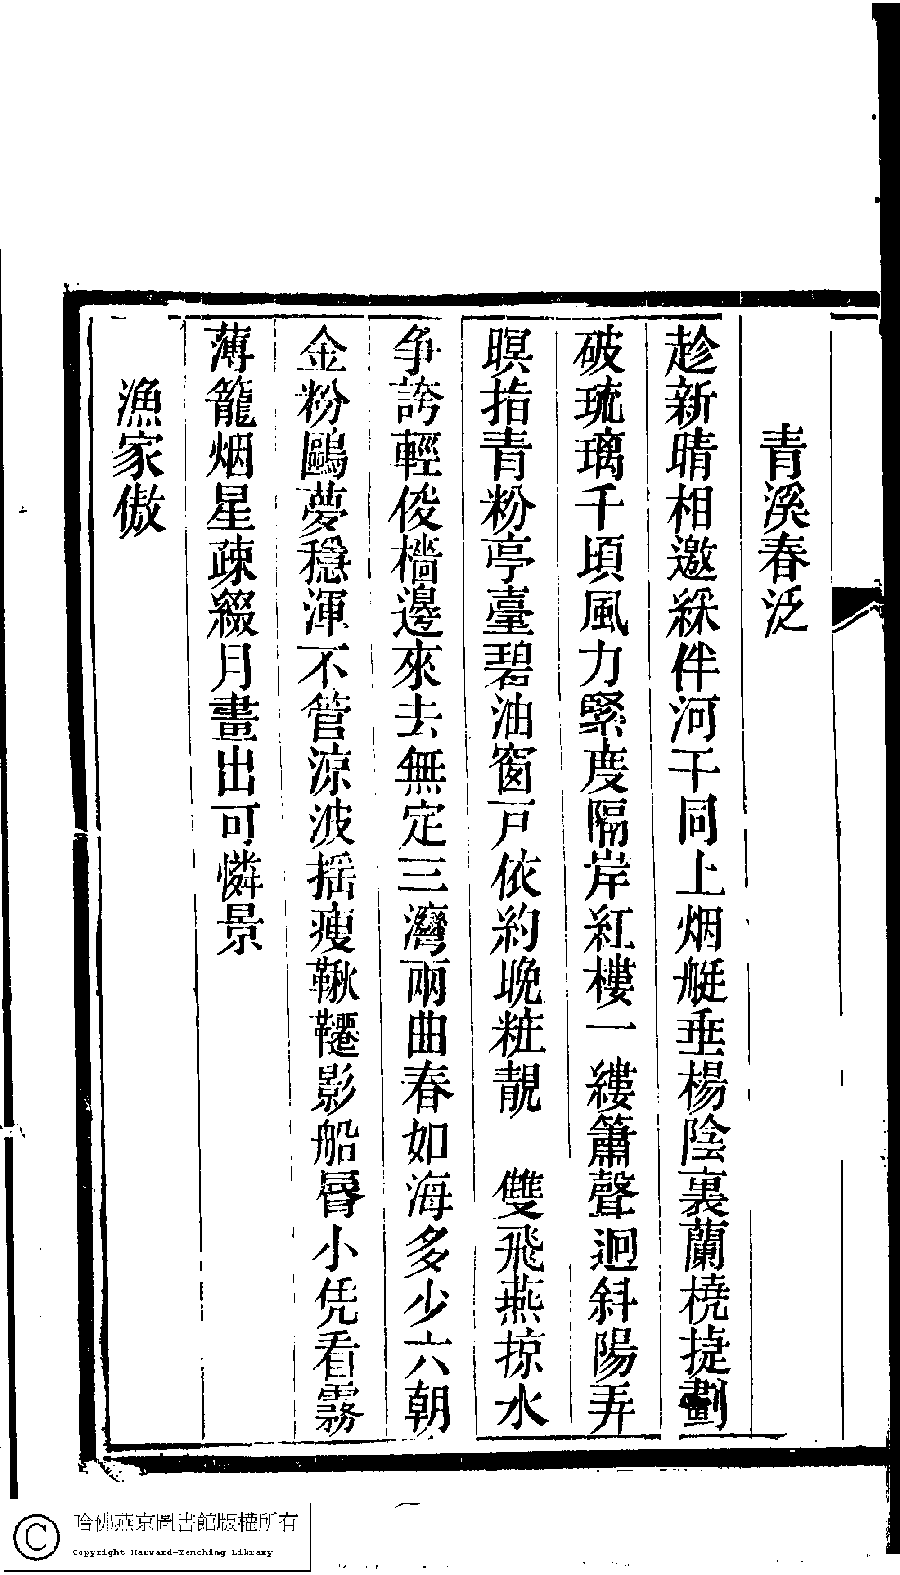 青溪春泛
趁新晴相邀綵伴河干同上烟艇垂楊陰裏蘭橈捷劃
破琉璃千頃風力緊度隔岸紅樓一縷簫聲迥斜陽弄
暝指青粉亭臺碧油窗戸依約晚粧靚　雙飛燕掠水
争誇輕俊檣邊來去無定三灣兩曲春如海多少六朝
金粉鷗夢穩渾不管涼波摇瘦鞦韆影船脣小凭看霧
薄籠烟星疎綴月畫出可憐景
漁家傲
哈佛燕京圖書館版權所有
Copyright Harvard-Yenching Library